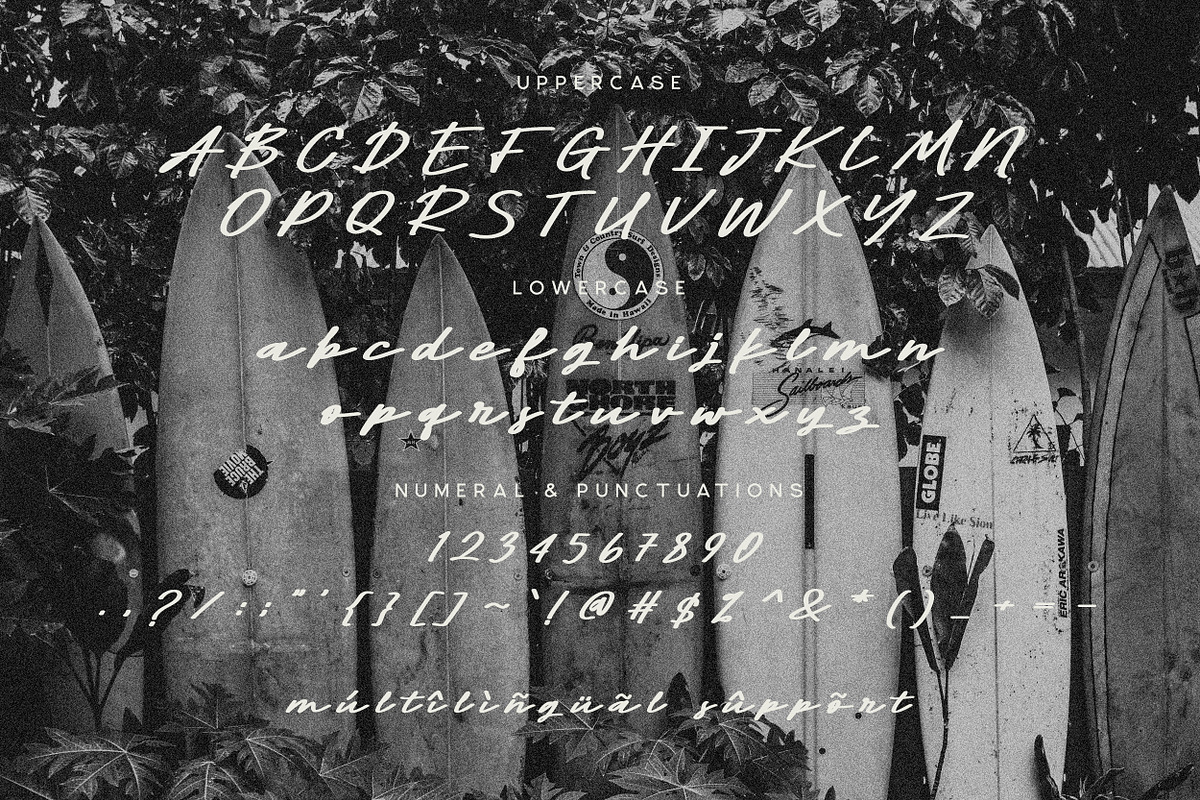 UPPERCASE
A B C D E F G H I J K L M N
O P Q R S T U V W X Y Z
Town & Country Surf Designs
Made in Hawaii
LOWERCASE
a b c d e f g h i j k l m n
HANALEI
Sailboards
NORTH
SHORE
o p q r s t u v w x y z
Boyz
THE
BRUCE
MOVIE
GLOBE
Live Like Sion
ERIC ARAKAWA
NUMERAL & PUNCTUATIONS
1 2 3 4 5 6 7 8 9 0
. . ? / : ; " ' { } [ ] ~ ` ! @ # $ % ^ & * ( ) _ + = -
múltîlìñgüãl sûppõrt